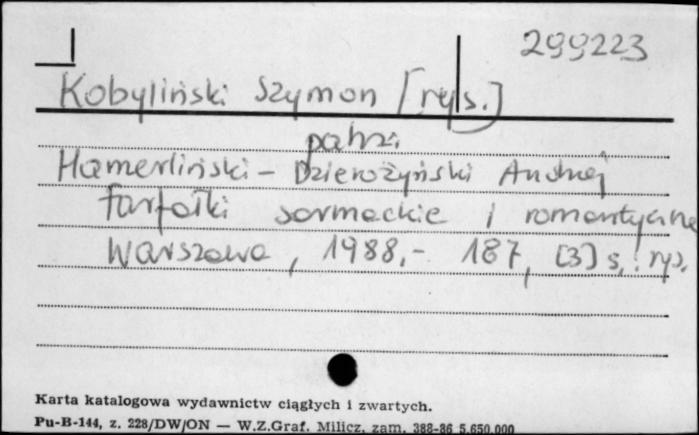 299223
Kobyliński Szymon [rys.]
patrz:
Hamerliński - Dzierożyński Andrzej
Farfałki sarmackie i romantyczne
Warszawa, 1988,- 187, [3] s, : rys.
Karta katalogowa wydawnictw ciągłych i zwartych.
Pu-B-144, z. 228/DW/ON — W.Z.Graf. Milicz, zam. 388-86 5.650.000